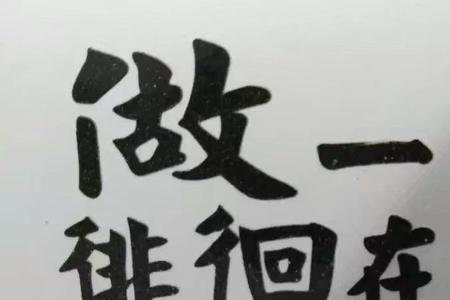 做一
徘徊在